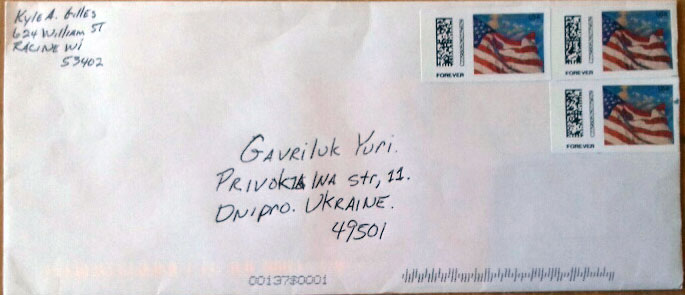 Kyle A. Gilles
624 William ST
RACINE WI
53402
FOREVER
FOREVER
FOREVER
GAVRILUK YURI.
PRIVOKLINA str, 11.
DNIPRO. UKRAINE.
49501
00137$0001